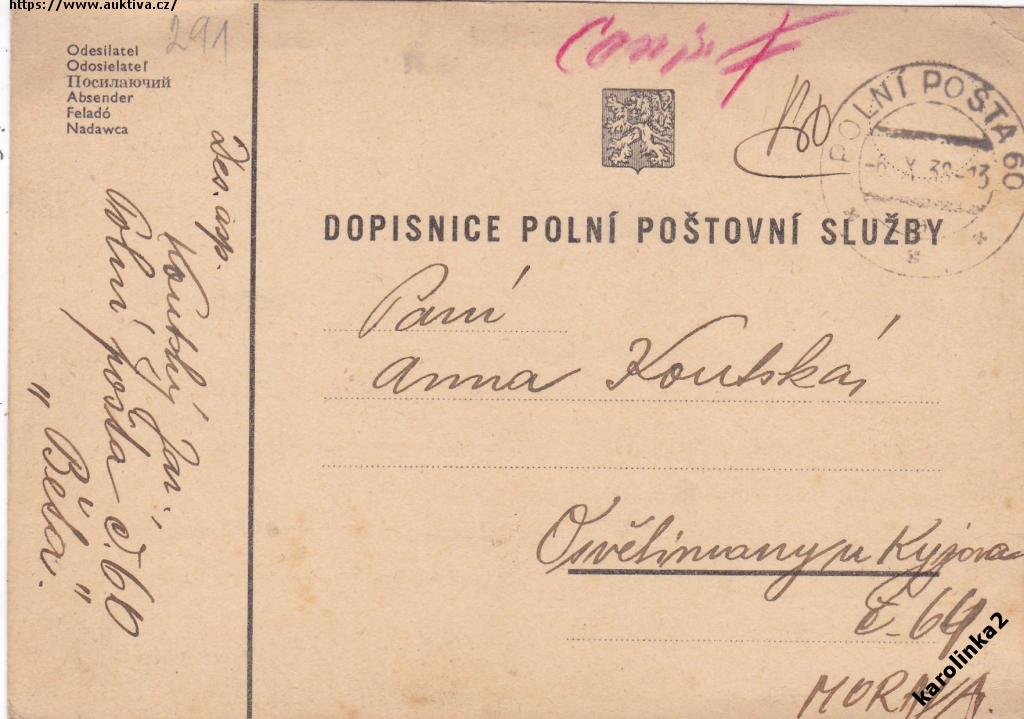 https://www.auktiva.cz/
291
Odesilatel
Odosielateľ
Посилаючий
Absender
Feladó
Nadawca
POLNÍ POŠTA 60
-8. X. 38-13
DOPISNICE POLNÍ POŠTOVNÍ SLUŽBY
Paní
Anna Koutská,
Osvětimany u Kyjova
č. 64
MORAVA.
Des. asp.
Koutský Jan.,
Polní pošta č. 60
" Běla. "
karolinka2